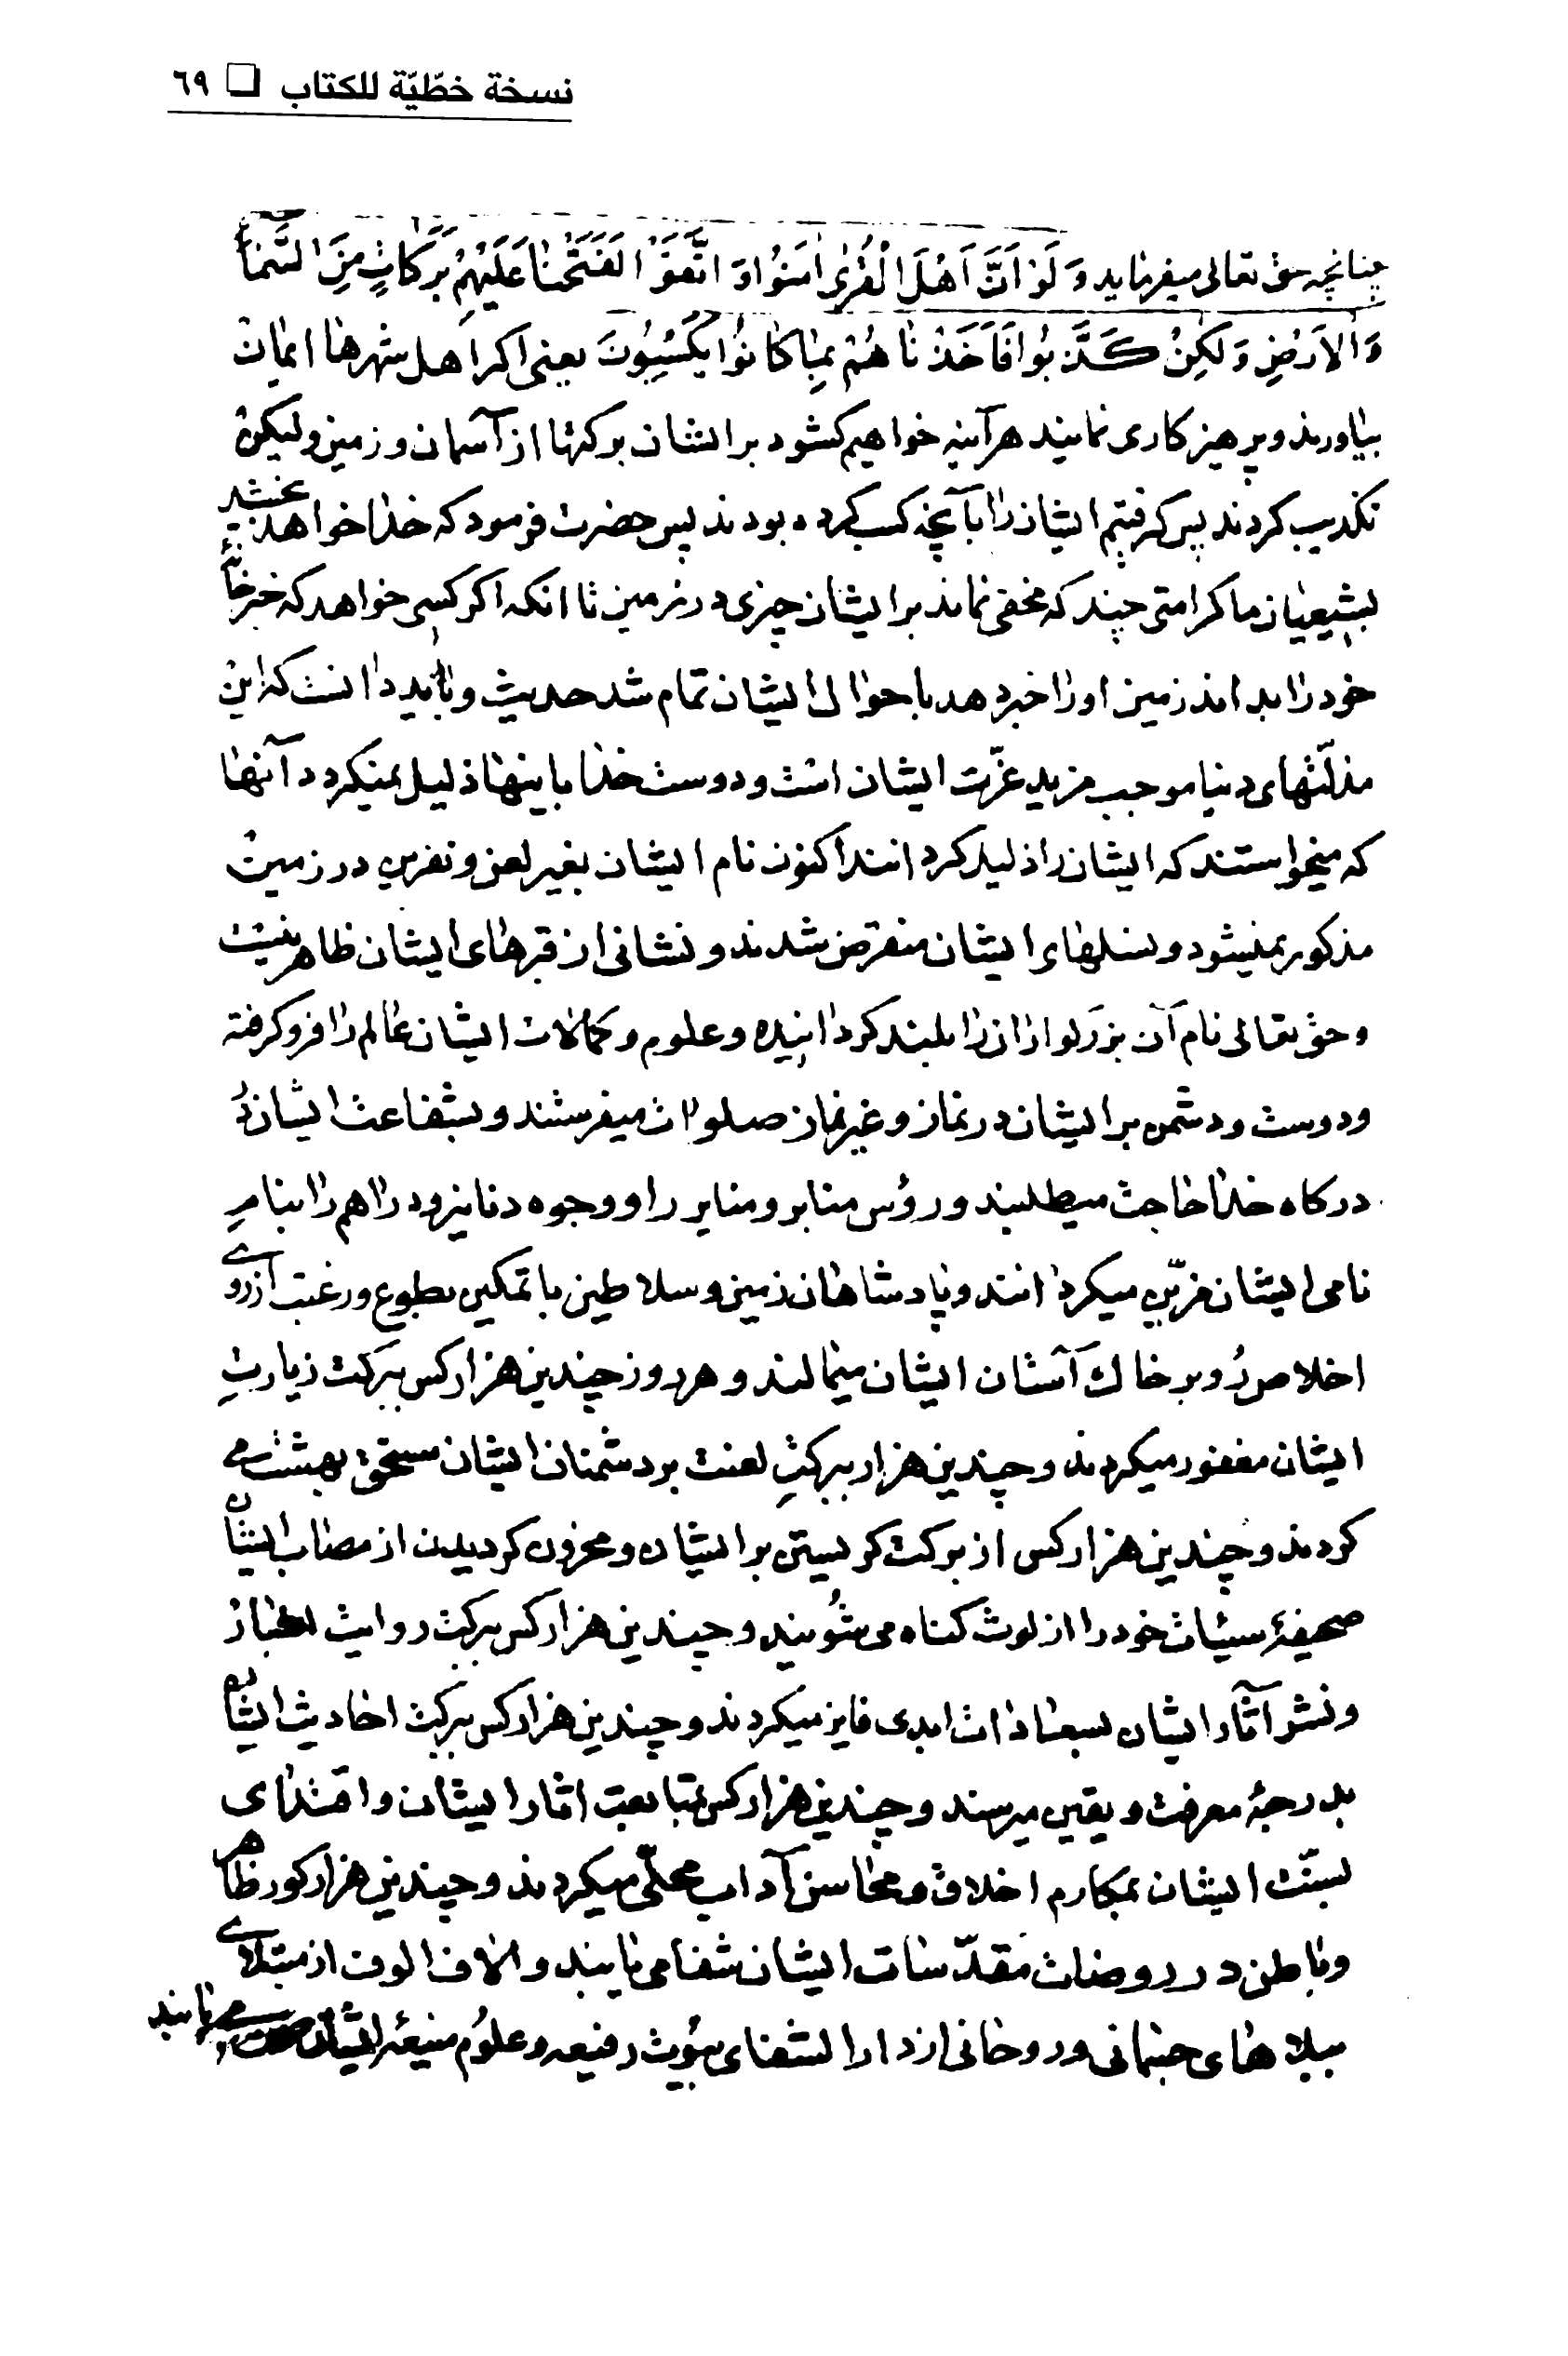 نسخة خطّيّة للكتاب ❏ ٦٩
چنانچه حق تعالی میفرماید وَ لَوْ اَنَّ اَهْلَ الْقُرٰی اٰمَنُوا وَ اتَّقَوْا لَفَتَحْنٰا عَلَیْهِمْ بَرَکٰاتٍ مِنَ السَّمٰاءِ
وَ الْاَرْضِ وَ لٰکِنْ کَذَّبُوا فَاَخَذْنٰاهُمْ بِمٰا کٰانُوا یَکْسِبُونَ یعنی اکر اهل شهرها ایمان
بیاورند و پرهیزکاری نمایند هرآینه خواهیم کشود بر ایشان برکتها از آسمان و زمین و لیکن
تکذیب کردند پس کرفتیم ایشان را بآنچه کسب کرده بودند پس حضرت فرمود که خدا خواهد بخشید
بشیعیان ما کرامتی چند که مخفی نماند بر ایشان چیزی در زمین تا انکه اکر کسی خواهد که خبر خانهٔ
خود را بداند زمین او را خبر دهد باحوال ایشان تمام شد حدیث و باید دانست که این
مذلّتهای دنیا موجب مزید عزّت ایشان است و دوست خدا باینها ذلیل نمیکردد آنها
که میخواستند که ایشان را ذلیل کردانند اکنون نام ایشان بغیر لعن و نفرین در زمین
مذکور نمیشود و نسلهای ایشان منقرض شدند و نشانی از قبرهای ایشان ظاهر نیست
و حق تعالی نام آن بزرکواران را بلند کردانیده و علوم و کمالات ایشان عالم را فرو کرفته
و دوست و دشمن بر ایشان در نماز و غیر نماز صلوات میفرستند و بشفاعت ایشان در
درکاه خدا حاجت میطلبند و رؤس منابر و منایر را و وجوه دنانیر و دراهم را بنام
نامی ایشان مزیّن میکردانند و پادشاهان زمین و سلاطین با تمکین بطوع و رغبت از روی
اخلاص رُو بر خاک آستان ایشان میمالند و هر روز چندین هزار کس ببرکت زیارت
ایشان مغفور میکردند و چندین هزار ببرکتِ لعنت بر دشمنان ایشان مستحق بهشت می
کردند و چندین هزار کس از برکت کریستن بر ایشان و محزون کردیدن از مصائب ایشان
صحیفهٔ سیئات خود را از لوث کناه می‌شُویند و چندین هزار کس ببرکت روایت اخبار
و نشر آثار ایشان بسعادات ابدی فایز میکردند و چندین هزار کس ببرکت احادیث ایشان
بدرجهٔ معرفت و یقین میرسند و چندین هزار کس بمتابعت اثار ایشان و اقتدای
بسنّت ایشان بمکارم اخلاق و محاسن آداب محلّی میکردند و چندین هزار کور ظاهر
و باطن در روضات مقدّسات ایشان شفا می‌یابند و الاف الوف از مبتلای
ببلاهای جسمانی و روحانی از دارالشفای بیُوت رفیعه و علوُم منیعهٔ ایشان صحت می یابند